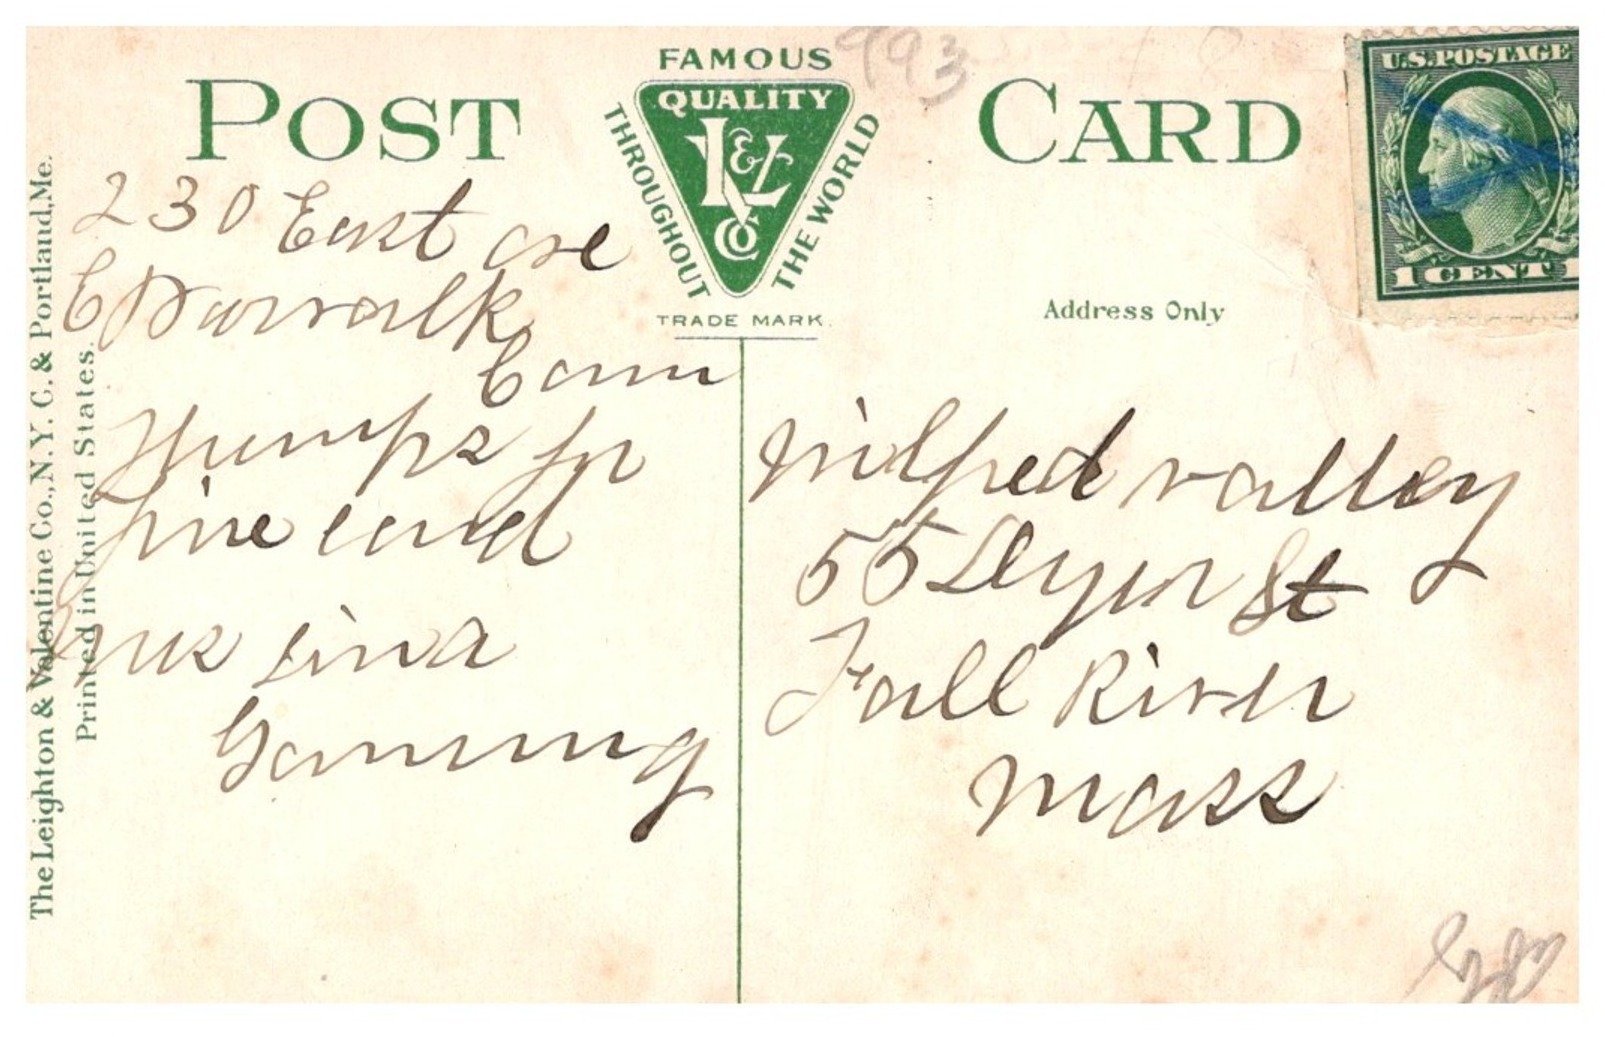 POST CARD
FAMOUS
QUALITY
L&V
CO
THROUGHOUT THE WORLD
TRADE MARK.
993
U.S. POSTAGE
1 CENT 1
Address Only
230 East ave
E Norwalk
Conn
fine card
mrs
wilfred valley
55 Dyer St
Fall River
mass
The Leighton & Valentine Co., N.Y.C. & Portland, Me.
Printed in United States.